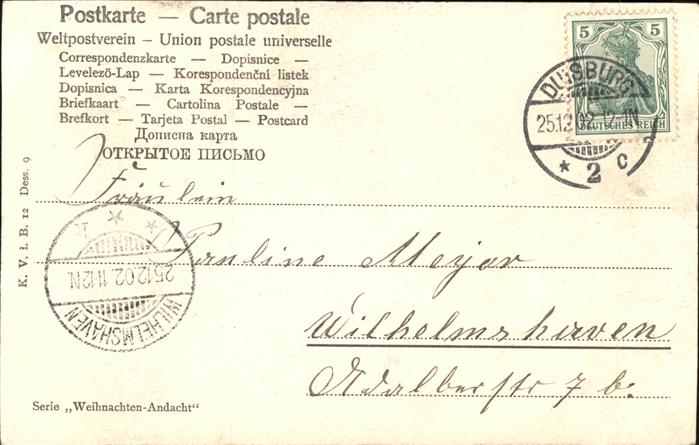 Postkarte — Carte postale
Weltpostverein – Union postale universelle
Correspondenzkarte — Dopisnice —
Levelező-Lap — Korespondenční listek
Dopisnica — Karta Korespondencyjna
Briefkaart — Cartolina Postale —
Brefkort — Tarjeta Postal — Postcard
Дописна карта
ОТКРЫТОЕ ПИСЬМО
5 5
DEUTSCHES REICH
DUISBURG
25.12.02.12-1N
* 2 c
Fräulein
Pauline Meyer
Wilhelmshaven
Adalberstr 7 b.
WILHELMSHAVEN
25.12.02.11-12N.
* * *
K. V. i. B. 12 Dess. 9
Serie „Weihnachten-Andacht“